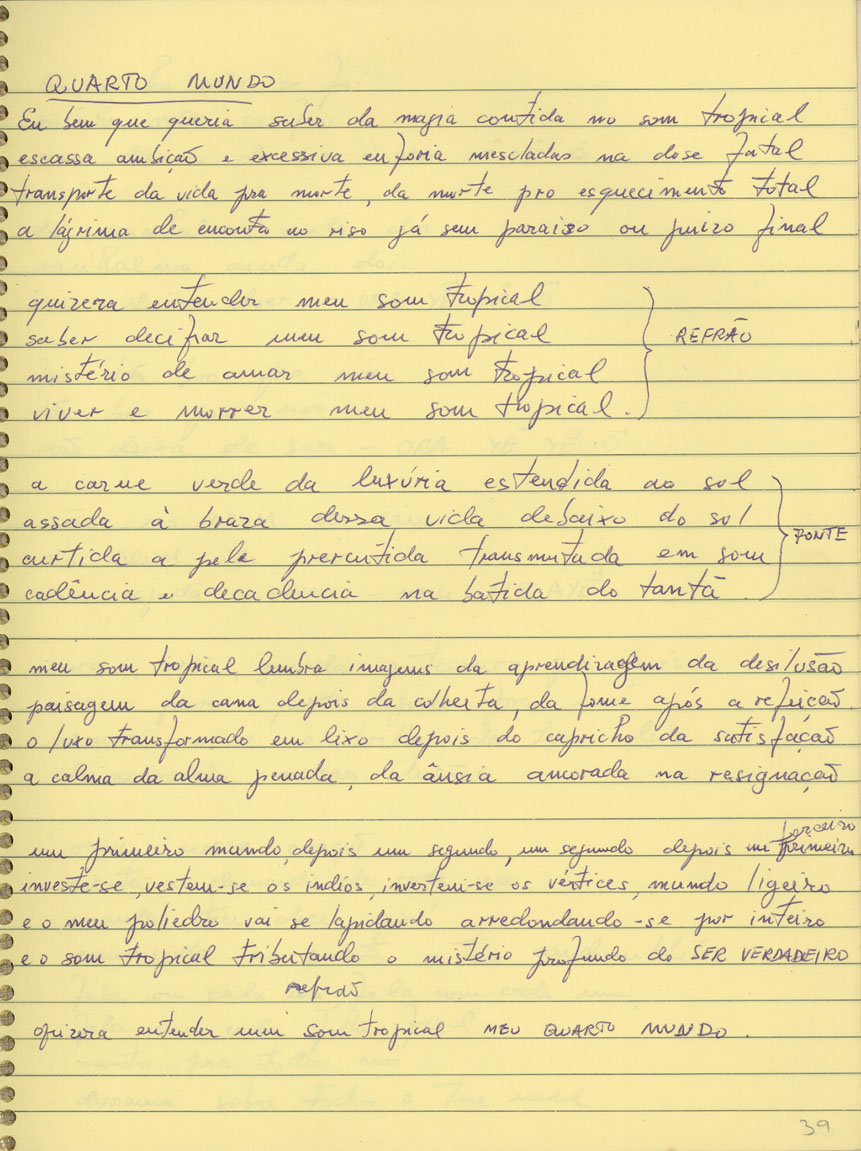 QUARTO MUNDO
Eu bem que queria saber da magia contida no som tropical
escassa ambição e excessiva euforia mescladas na dose fatal
transporte da vida pra morte, da morte pro esquecimento total
a lágrima de encontro ao riso já sem paraiso ou juizo final
quizera entender meu som tropical
saber decifrar meu som tropical
REFRÃO
mistério de amar meu som tropical
viver e morrer meu som tropical.
a carne verde da luxúria estendida ao sol
assada à braza dessa vida debaixo do sol
PONTE
curtida a pele percutida transmutada em som
cadência e decadencia na batida do tantã
meu som tropical lembra imagens da aprendizagem da desilusão
paisagem da cana depois da colheita, da fome após a refeição
o luxo transformado em lixo depois do capricho da satisfação
a calma da alma penada, da ânsia ancorada na resignação
terceiro
um primeiro mundo, depois um segundo, um segundo depois um primeiro
investe-se, vestem-se os indios, invertem-se os vértices, mundo ligeiro
e o meu poliedro vai se lapidando arredondando-se por inteiro
e o som tropical tributando o mistério profundo do SER VERDADEIRO
refrão
quizera entender meu som tropical MEU QUARTO MUNDO.
39